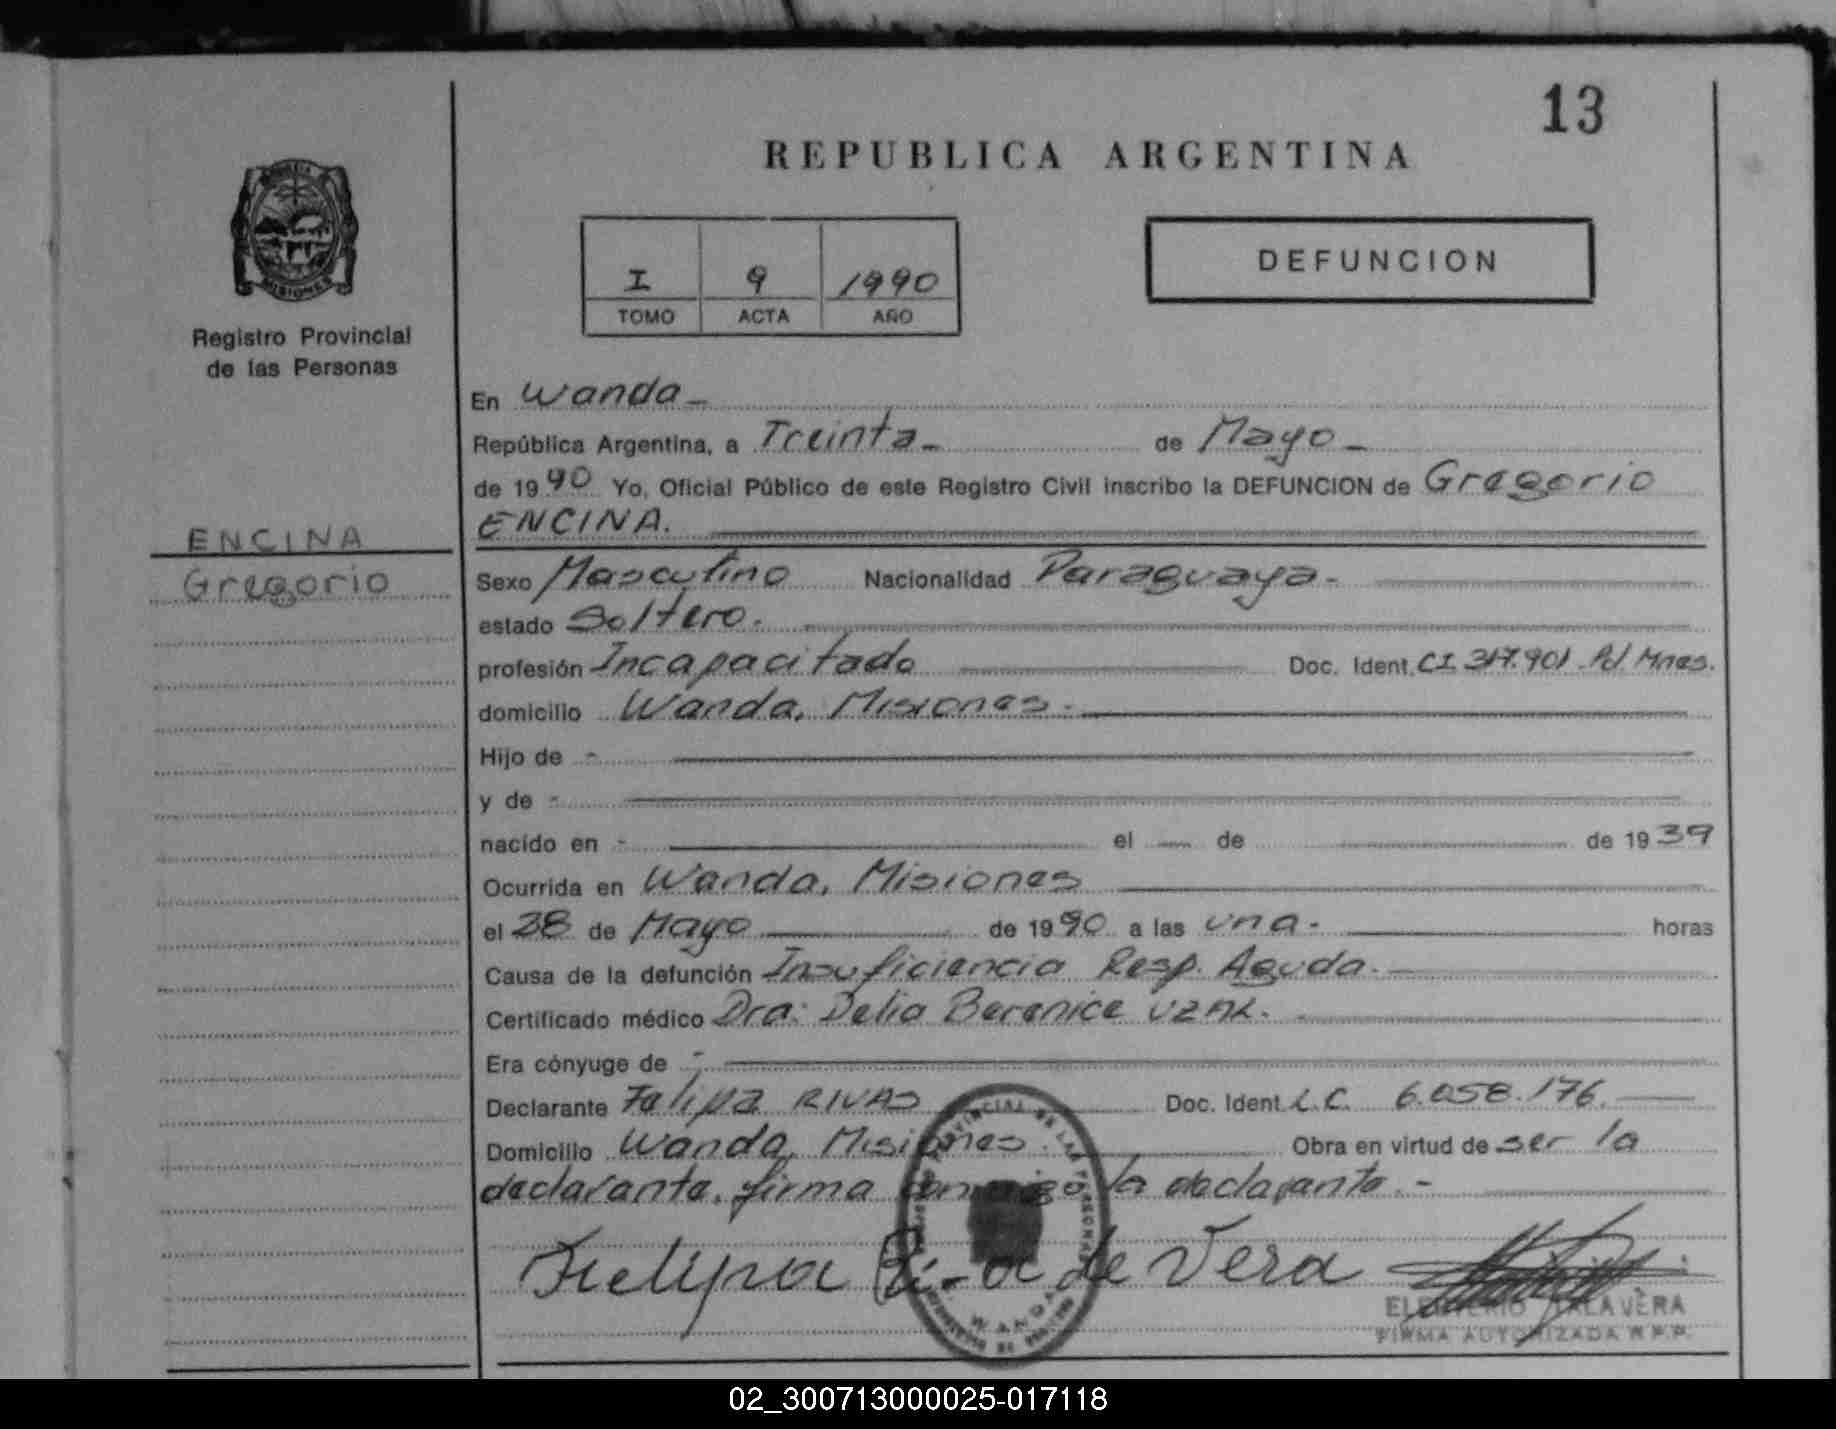 13
REPUBLICA ARGENTINA
MISIONES
Registro Provincial
de las Personas
I 9 1990
TOMO ACTA AÑO
DEFUNCION
En Wanda -
República Argentina, a Treinta - de Mayo -
de 1990 Yo, Oficial Público de este Registro Civil inscribo la DEFUNCION de Gregorio
ENCINA.
ENCINA
Gregorio
Sexo Masculino Nacionalidad Paraguaya -
estado Soltero.
profesión Incapacitado Doc. Ident. CI 317.901 Pol. Mnes.
domicilio Wanda, Misiones -
Hijo de -
y de -
nacido en - el de de 1939
Ocurrida en Wanda, Misiones
el 28 de Mayo de 1990 a las una - horas
Causa de la defunción Insuficiencia Resp. Aguda.
Certificado médico Dra: Delia Berenice UZAL.
Era cónyuge de -
Declarante Felipa RIVAS Doc. Ident. L.C. 6.058.176.
Domicilio Wanda, Misiones. Obra en virtud de ser la
declarante, firma conmigo la declarante. -
de Vera
ELEUTERIO TALAVERA
FIRMA AUTORIZADA R.P.P.
PROVINCIAL DE LAS PERSONAS
WANDA
02_300713000025-017118